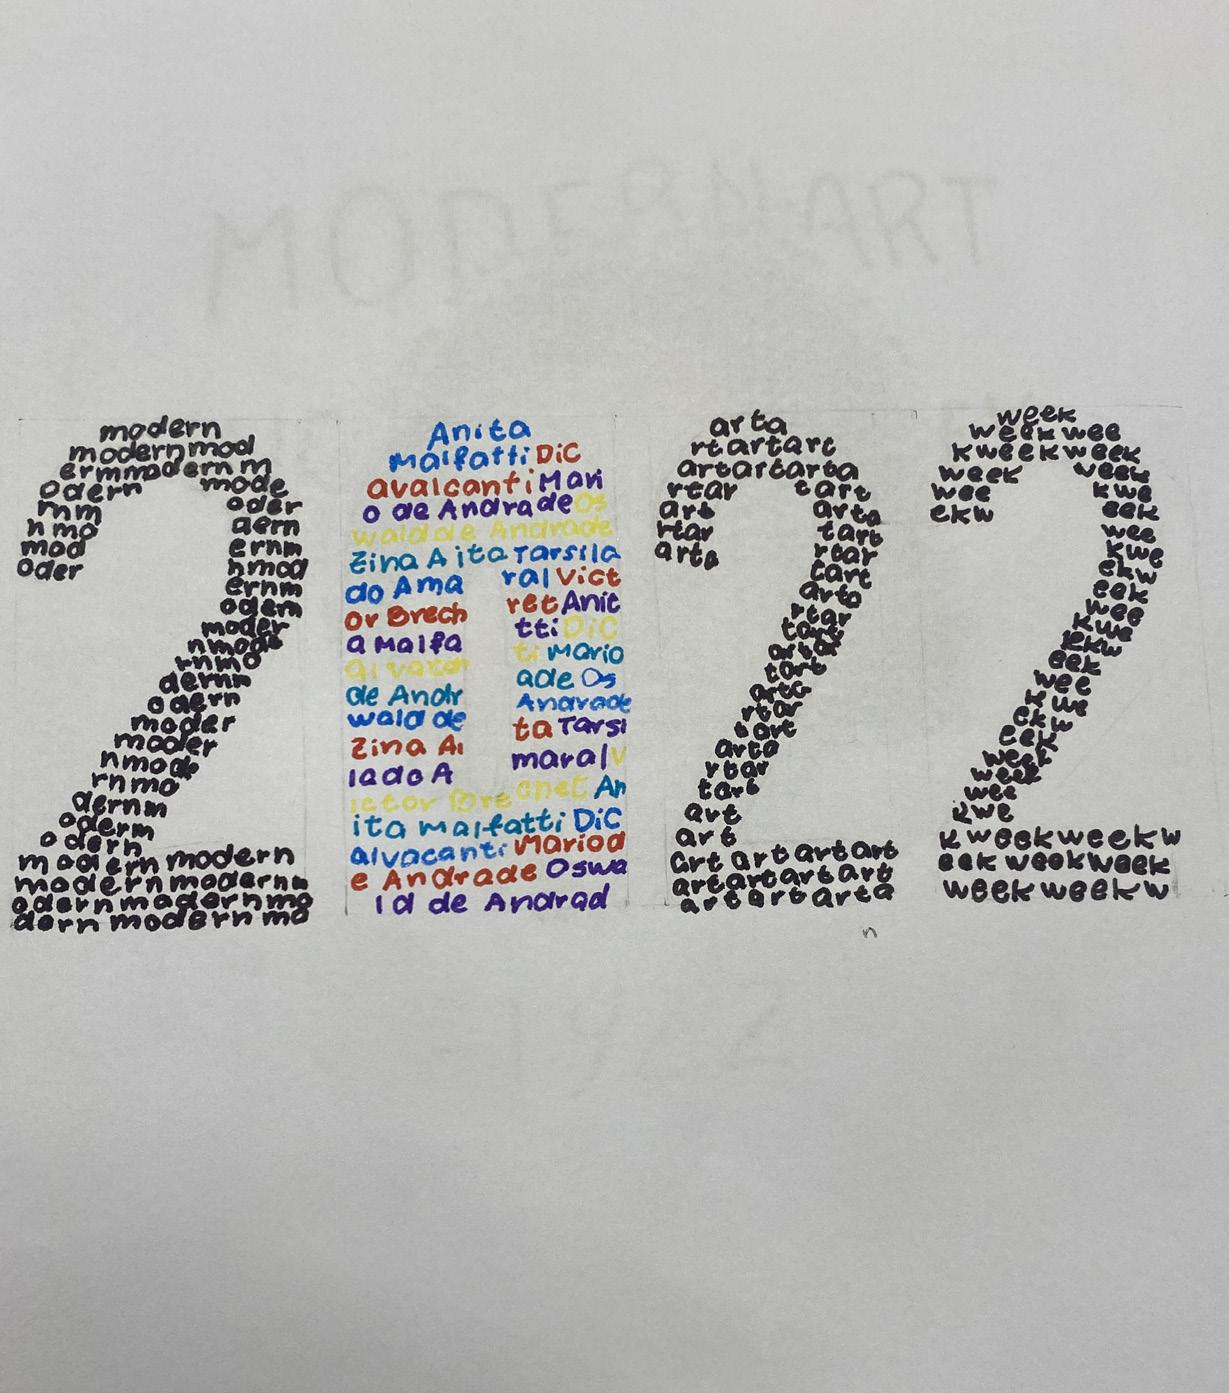 MODERN ART
modern
modernmod
ermmodernm
odern mode
mm oder
nmo aern
mod ernm
oder nmod
ernm
odem
moder
nmode
rnmo
dernm
odern
moder
moder
nmode
rnmo
dernm
oderm
odern
modern modern
modernmodernm
odernmodernmo
dern modern mo
Anita
Malfatti DiC
avalcanti Mari
o de Andrade Os
wald de Andrade
Zina Aita Tarsila
do Ama ral Vict
or Brech ret Anit
a Malfa tti DiC
ti Mario
de Andr ade Os
wald de Andrade
Zina Ai ta Tarsi
lado A maral V
ictor Bre chet An
ita Malfatti DiC
alvacanti Mariod
e Andrade Oswa
ld de Andrad
arta
rtartart
artartarta
rtar tart
art arta
rtar tart
arta rtar
tart
arta
rtar
tart
arta
tart
arta
rtar
tart
arta
rtar
tart
art
art
art art artart
artartartart
artartarta
n
week
weekwee
kweekweek
week week
wee kwe
ekw eek
wee
kwe
ekw
eek
wee
kwe
ekw
eek
wee
kwe
ekw
eek
week
week
wee
kwe
kweekweekw
eek weekweek
weekweekw